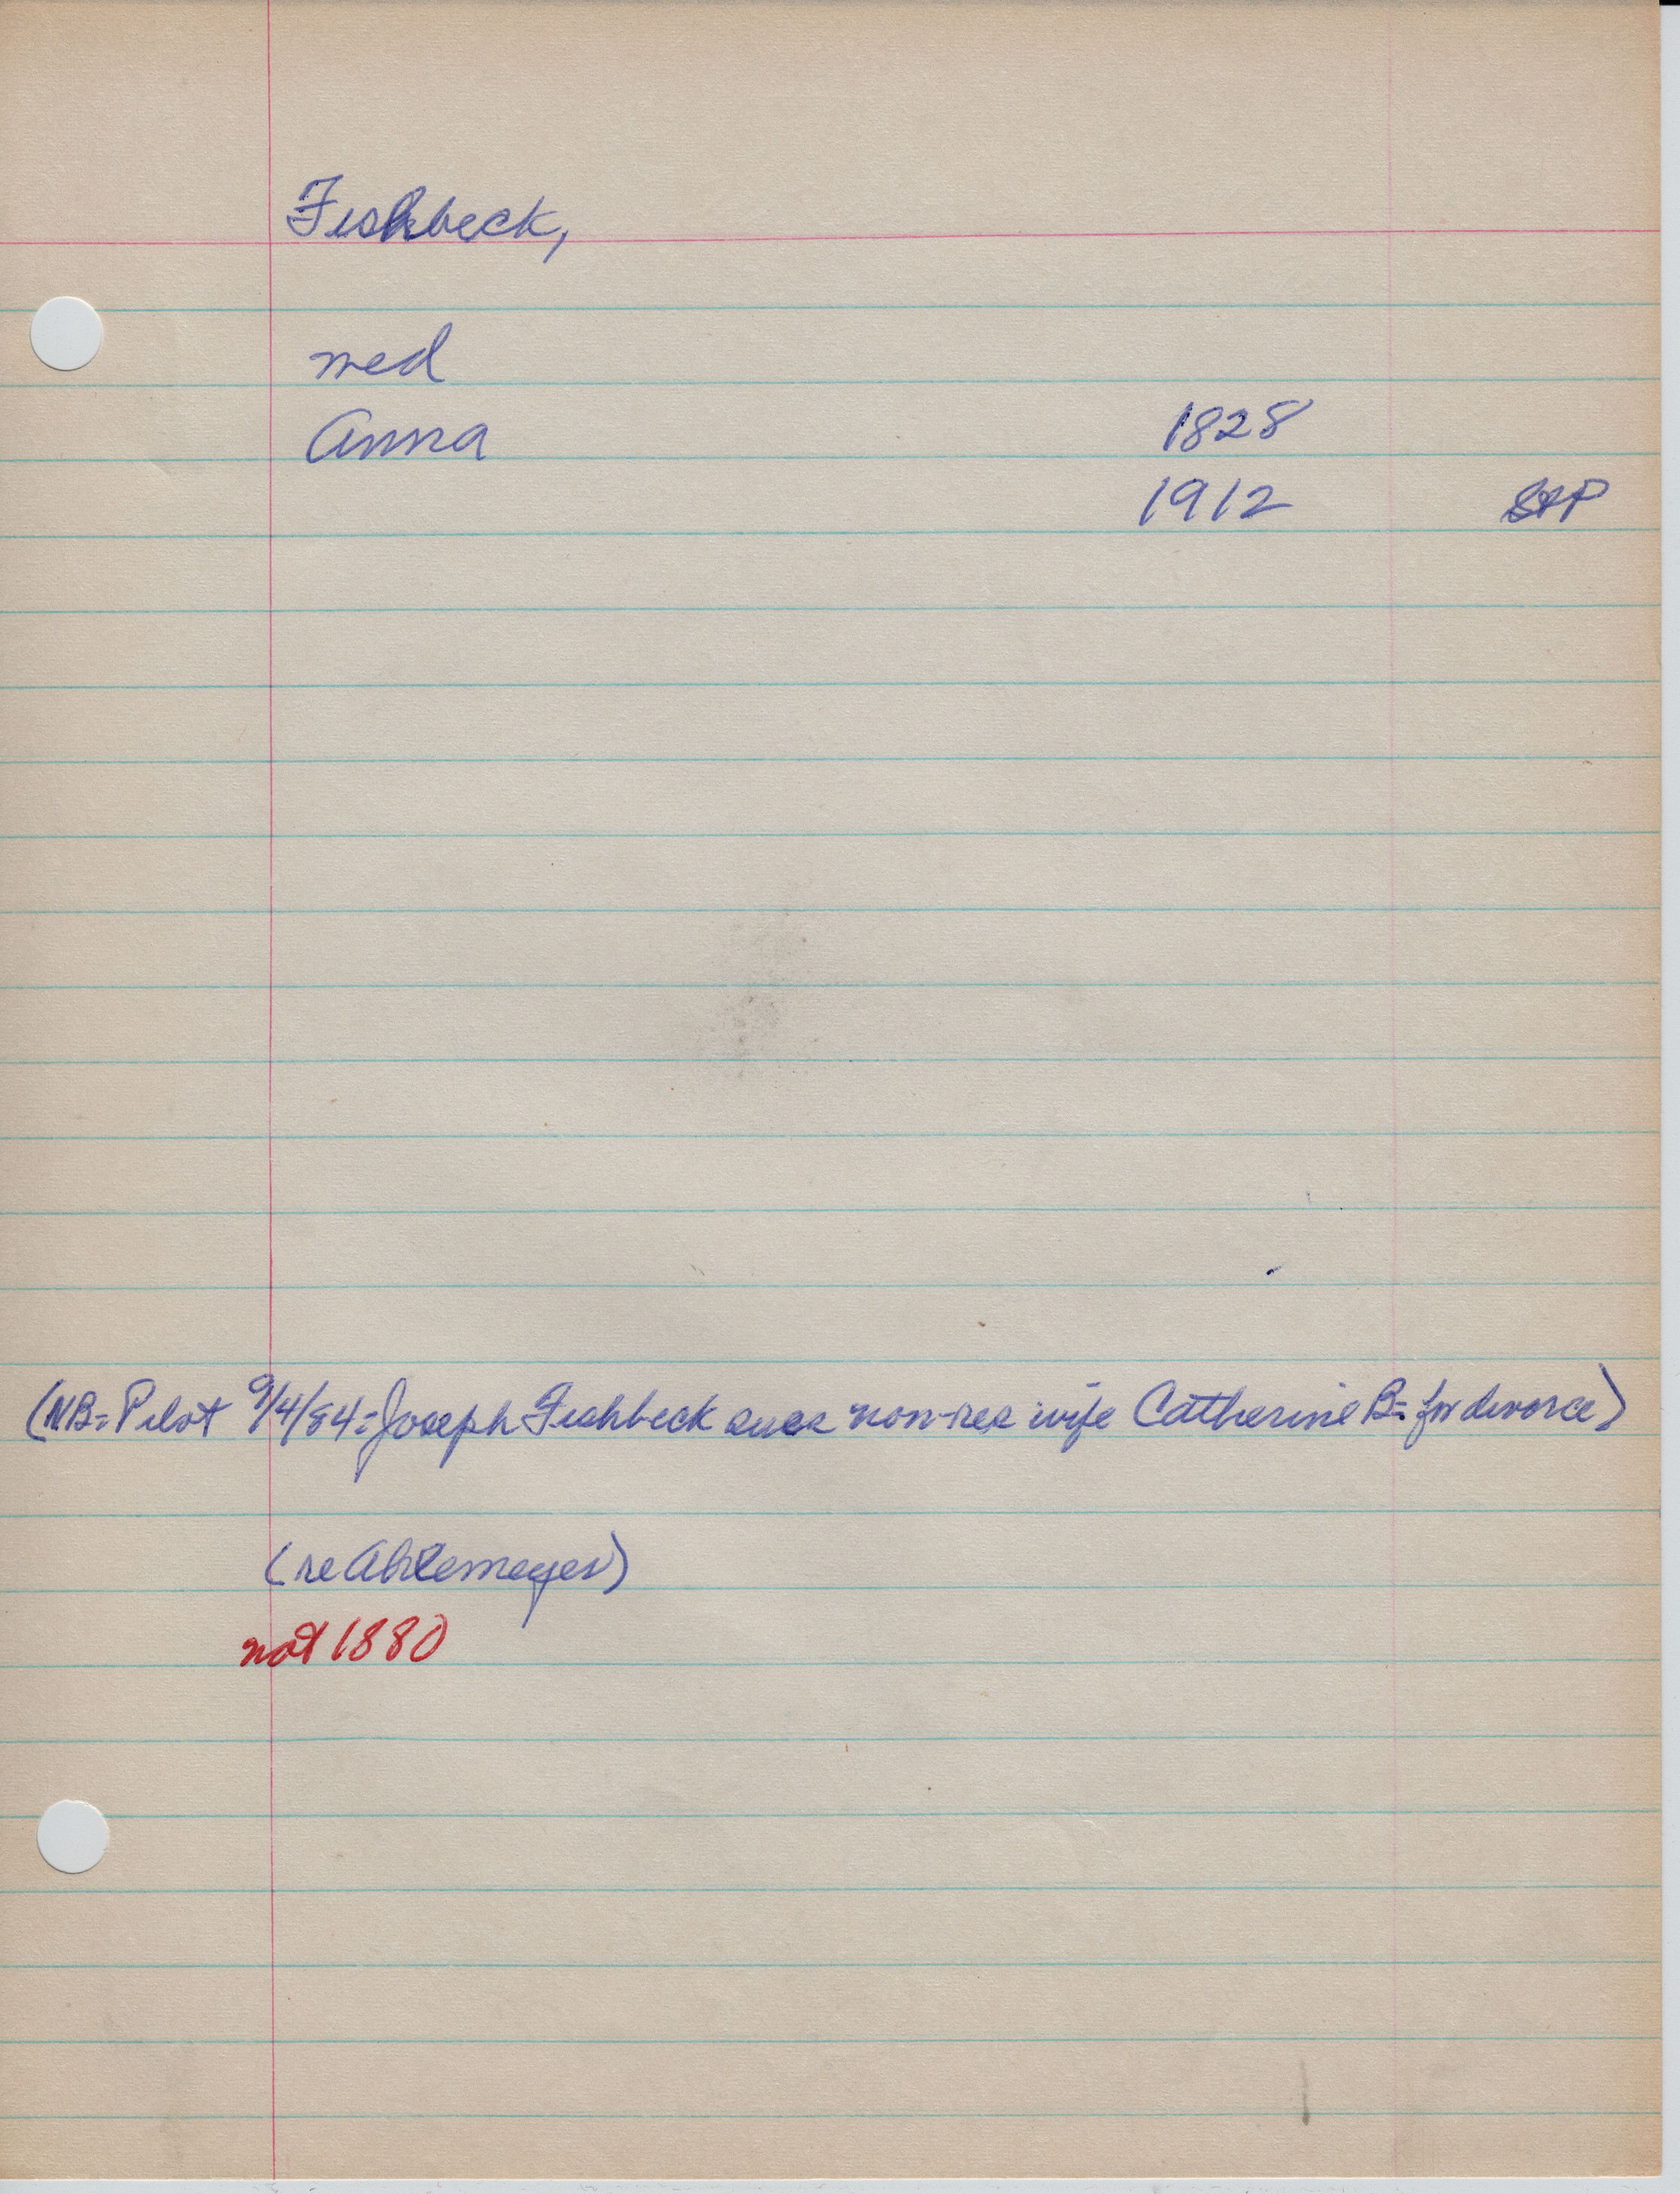 Fishbeck,
med
Anna 1828
1912 StP
(NB= Pilot 9/4/84= Joseph Fishbeck sues non-res wife Catherine B= for divorce)
(re Ahlemeyer)
not 1880